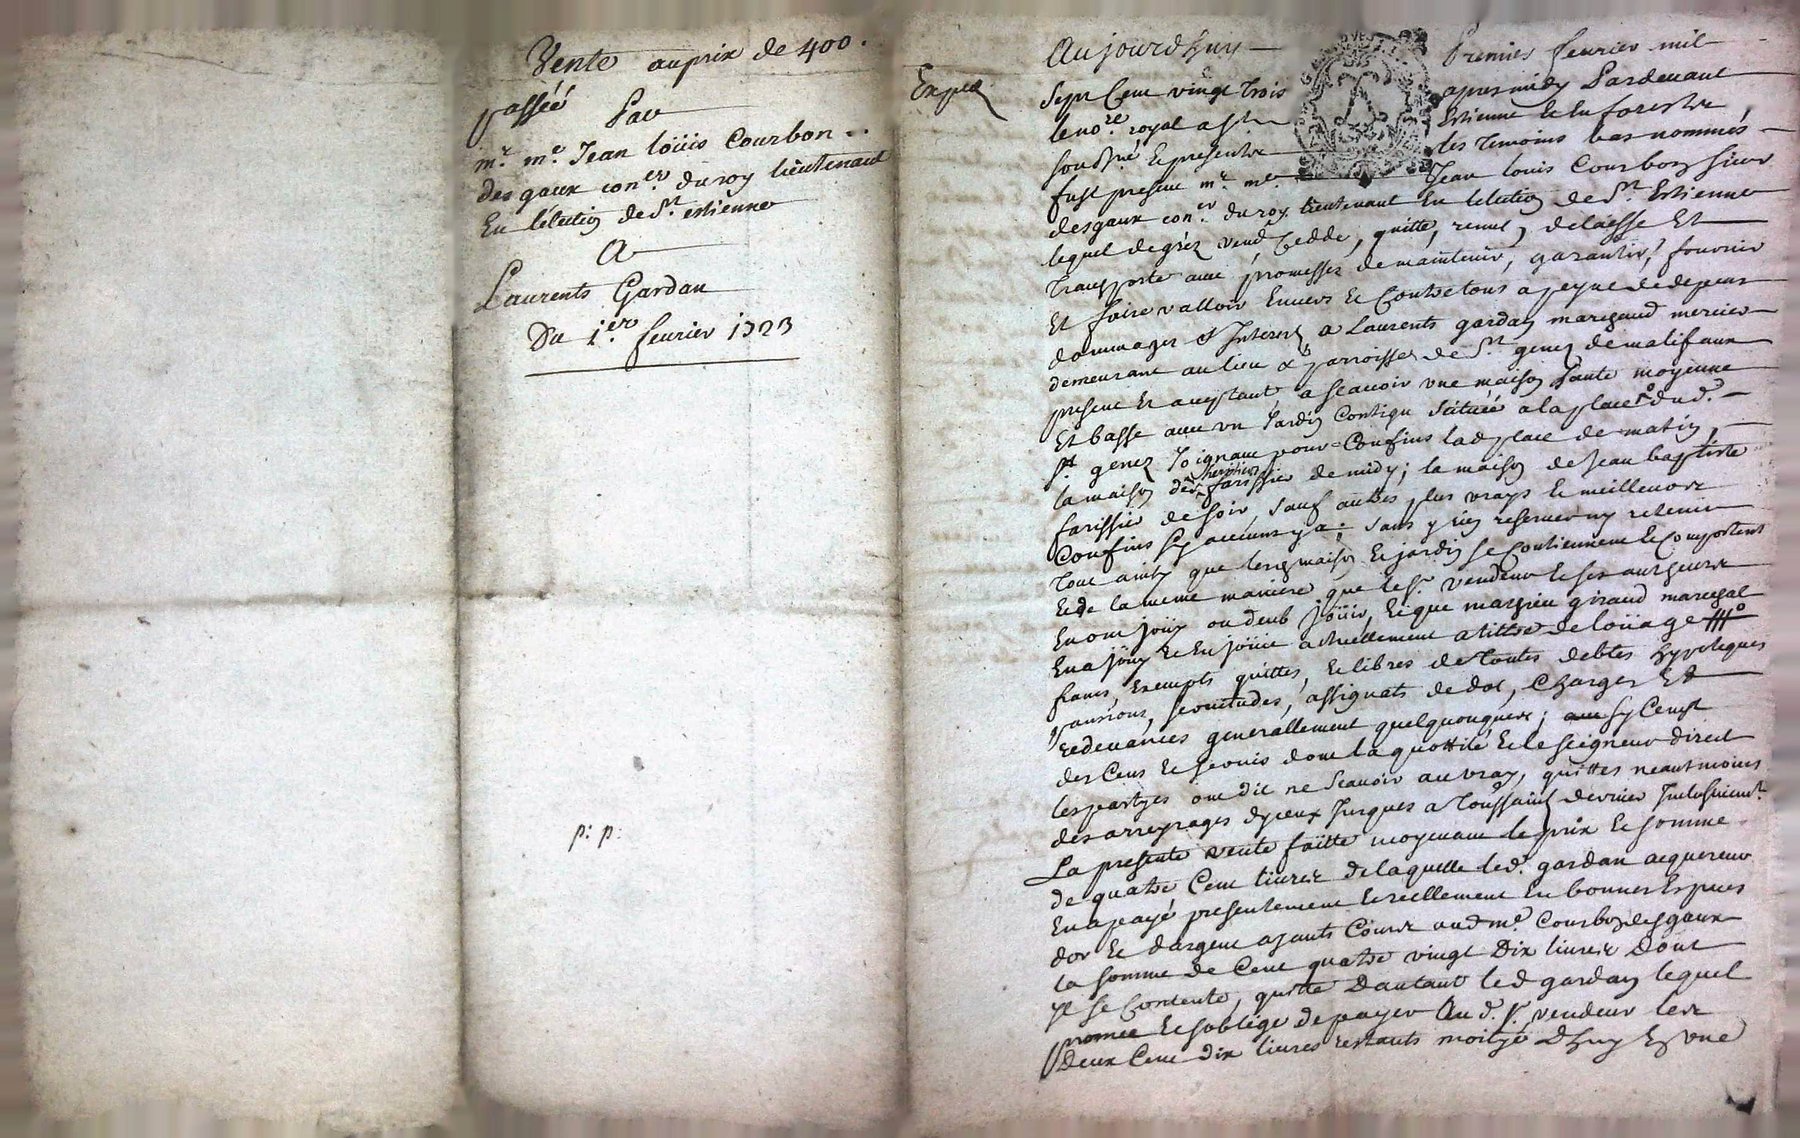 Vente auprix de 400.
passéé
Par
mr. me. Jean loüis Courbon..
des gaux coner. du roy lieutenant
En lélection de St. estienne
A
Laurents Gardan
Du 1er. feurier 1723
p: p:
Exped
Aujourdhuy Premier feurier mil
Sept Cent vingt trois apresmidy Pardeuant
le nore. royal a St. Estienne de en forest
sousné. Et presents les temoins bas nommés
fust present mr. me. Jean louis Courbon sieur
desgaux coner. du roy lieutenant En lelection de St. Estienne
lequel de grez vend Cedde, quitte, remet, delaisse Et
transporte auec promesses de maintenir, garantir, fournir
Et faire valloir Enuers Et Contre tous a peyne de depens
dommages & Interest, a Laurents gardan marchand mercier
demeurant au lieu & parroisse de St. genez de malifaux
present Et aceptant, a scauoir vne maison haute moyenne
Et basse auec vn Jardin Contigu scituéé a la place du d.
St genez Joignant pour Confins lad place de matin,
la maison des heritiers farissier de midy; la maison de Jean baptiste
farissier de soir, sauf autres plus vrays Et meilleurs
Confins sy aucuns y a; sans y rien reseruer ny retenir
tout ainsy que lesd maison Et jardin se Contiennent Et Comportent
Et de la meme maniere que led sr. vendeur Et ses autheurs
En ont joüy ou deub joüir, Et que mathieu giraud marechal
En a joüy Et En joüit actuellement a tittre de loüage
francs, Exempts quittes, Et libres de toutes debtes hypoteques
pansions, seruitudes, assignats de dot, Charges Et
redeuances generallement quelquonques; sy Cenest
des Cens Et seruis dont la quottité Et le seigneur direct
les partyes ont dit ne scauoir au vray, quittes neantmoins
des arreyrages dyceux Jusques a toussaint dernier Inclusiuemt.
La presente vente faitte moyenant le prix Et somme
de quatre Cent liures de laquelle led. gardan acquereur
En a payé presentement Et reellement En bonnes Especes
dor Et dargent ayants Cours aud me. Courbon desgaux
la somme de Cent quatre vingt Dix liures Dont
yl se Contente, quitte Dautant led gardan lequel
promet Et soblige de payer Au d. sr. vendeur les
Deux Cent dix liures restants moityé Dhuy En vne